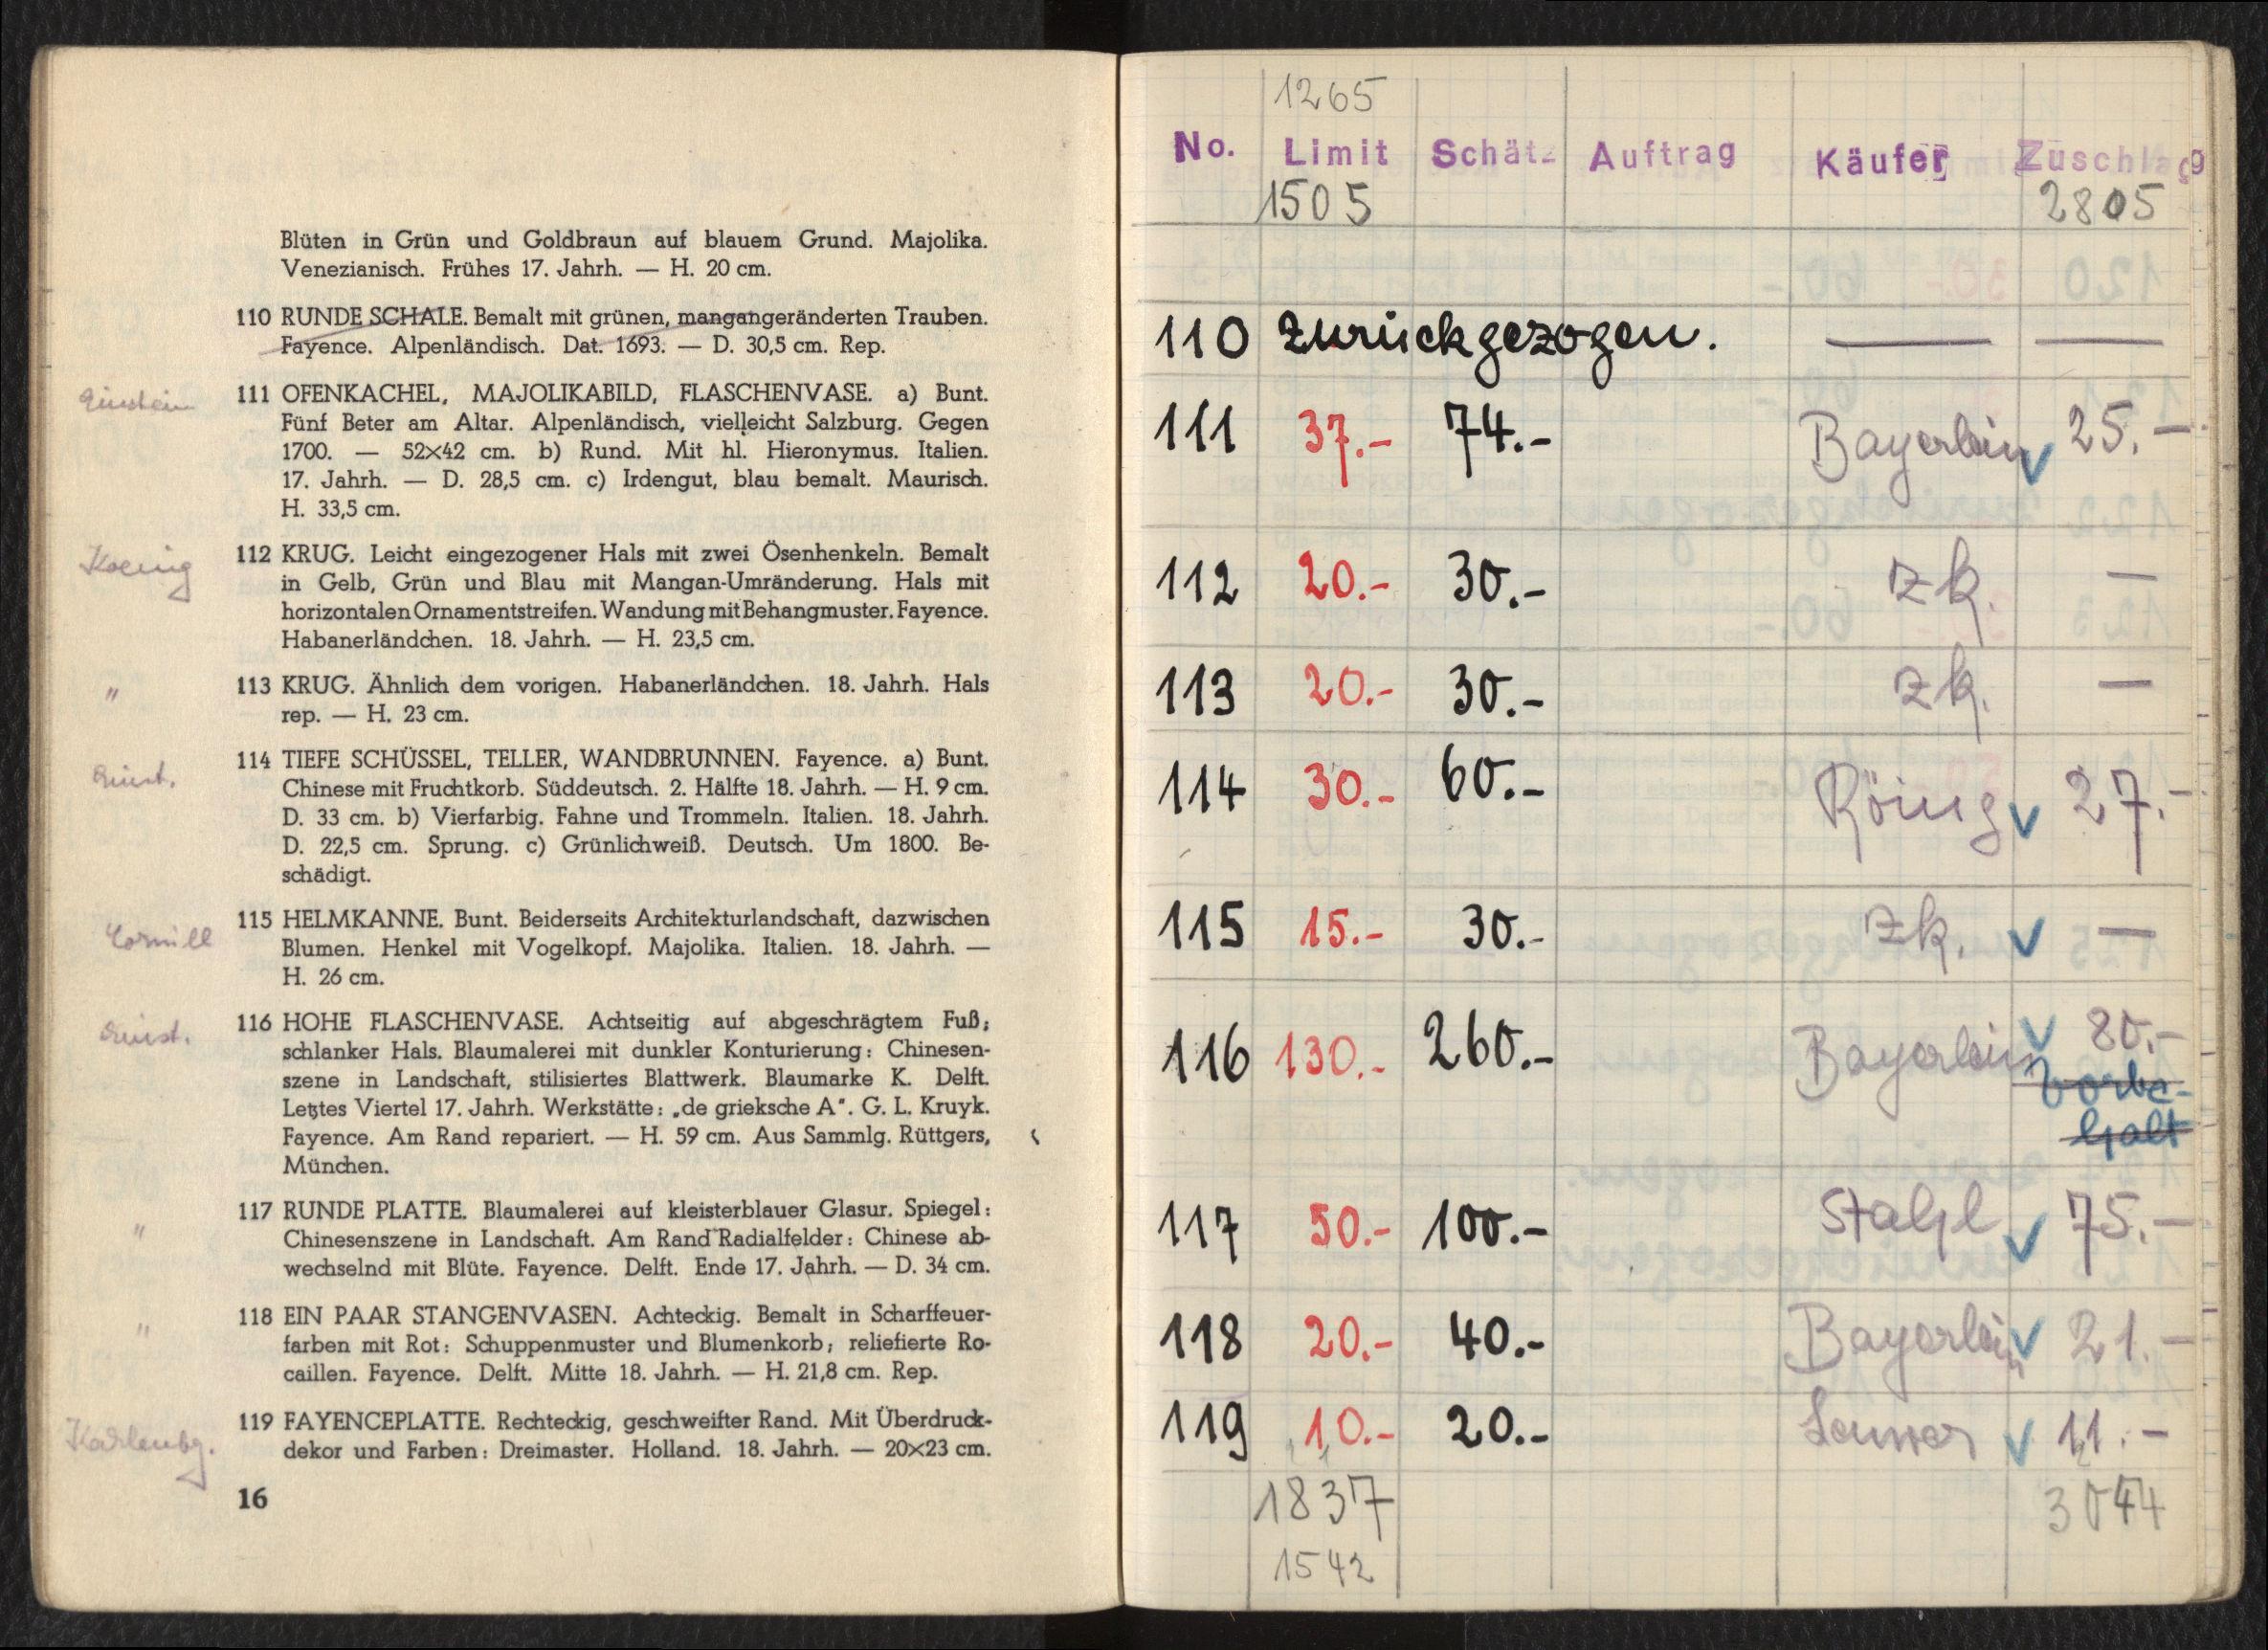 Blüten in Grün und Goldbraun auf blauem Grund. Majolika.
Venezianisch. Frühes 17. Jahrh. — H. 20 cm.
110 RUNDE SCHALE. Bemalt mit grünen, mangangeränderten Trauben.
Fayence. Alpenländisch. Dat. 1693. — D. 30,5 cm. Rep.
Einstein
111 OFENKACHEL, MAJOLIKABILD, FLASCHENVASE. a) Bunt.
Fünf Beter am Altar. Alpenländisch, vielleicht Salzburg. Gegen
1700. — 52×42 cm. b) Rund. Mit hl. Hieronymus. Italien.
17. Jahrh. — D. 28,5 cm. c) Irdengut, blau bemalt. Maurisch.
H. 33,5 cm.
Koenig
112 KRUG. Leicht eingezogener Hals mit zwei Ösenhenkeln. Bemalt
in Gelb, Grün und Blau mit Mangan-Umränderung. Hals mit
horizontalen Ornamentstreifen. Wandung mit Behangmuster. Fayence.
Habanerländchen. 18. Jahrh. — H. 23,5 cm.
"
113 KRUG. Ähnlich dem vorigen. Habanerländchen. 18. Jahrh. Hals
rep. — H. 23 cm.
Einst.
114 TIEFE SCHÜSSEL, TELLER, WANDBRUNNEN. Fayence. a) Bunt.
Chinese mit Fruchtkorb. Süddeutsch. 2. Hälfte 18. Jahrh. — H. 9 cm.
D. 33 cm. b) Vierfarbig. Fahne und Trommeln. Italien. 18. Jahrh.
D. 22,5 cm. Sprung. c) Grünlichweiß. Deutsch. Um 1800. Be-
schädigt.
Cornill
115 HELMKANNE. Bunt. Beiderseits Architekturlandschaft, dazwischen
Blumen. Henkel mit Vogelkopf. Majolika. Italien. 18. Jahrh. —
H. 26 cm.
Einst.
116 HOHE FLASCHENVASE. Achtseitig auf abgeschrägtem Fuß;
schlanker Hals. Blaumalerei mit dunkler Konturierung: Chinesen-
szene in Landschaft, stilisiertes Blattwerk. Blaumarke K. Delft.
Letztes Viertel 17. Jahrh. Werkstätte: „de grieksche A". G. L. Kruyk.
Fayence. Am Rand repariert. — H. 59 cm. Aus Sammlg. Rüttgers,
München.
"
117 RUNDE PLATTE. Blaumalerei auf kleisterblauer Glasur. Spiegel:
Chinesenszene in Landschaft. Am Rand Radialfelder: Chinese ab-
wechselnd mit Blüte. Fayence. Delft. Ende 17. Jahrh. — D. 34 cm.
"
118 EIN PAAR STANGENVASEN. Achteckig. Bemalt in Scharffeuer-
farben mit Rot: Schuppenmuster und Blumenkorb; reliefierte Ro-
caillen. Fayence. Delft. Mitte 18. Jahrh. — H. 21,8 cm. Rep.
119 FAYENCEPLATTE. Rechteckig, geschweifter Rand. Mit Überdruck-
dekor und Farben: Dreimaster. Holland. 18. Jahrh. — 20×23 cm.
16
1265
No. Limit Schätz Auftrag Käufer Zuschlag
1505 2805
110 Zurückgezogen. — —
111 37.- 74.- Bayerlein 25.-
112 20.- 30.- zk. —
113 20.- 30.- zk. —
114 30.- 60.- 27.-
115 15.- 30.- zk. —
116 130.- 260.- Bayerlein 80.-
Vorbe-
halt
117 50.- 100.- Stahl 75.-
118 20.- 40.- Bayerlein 21.-
119 10.- 20.- 11.-
1837 3044
1542